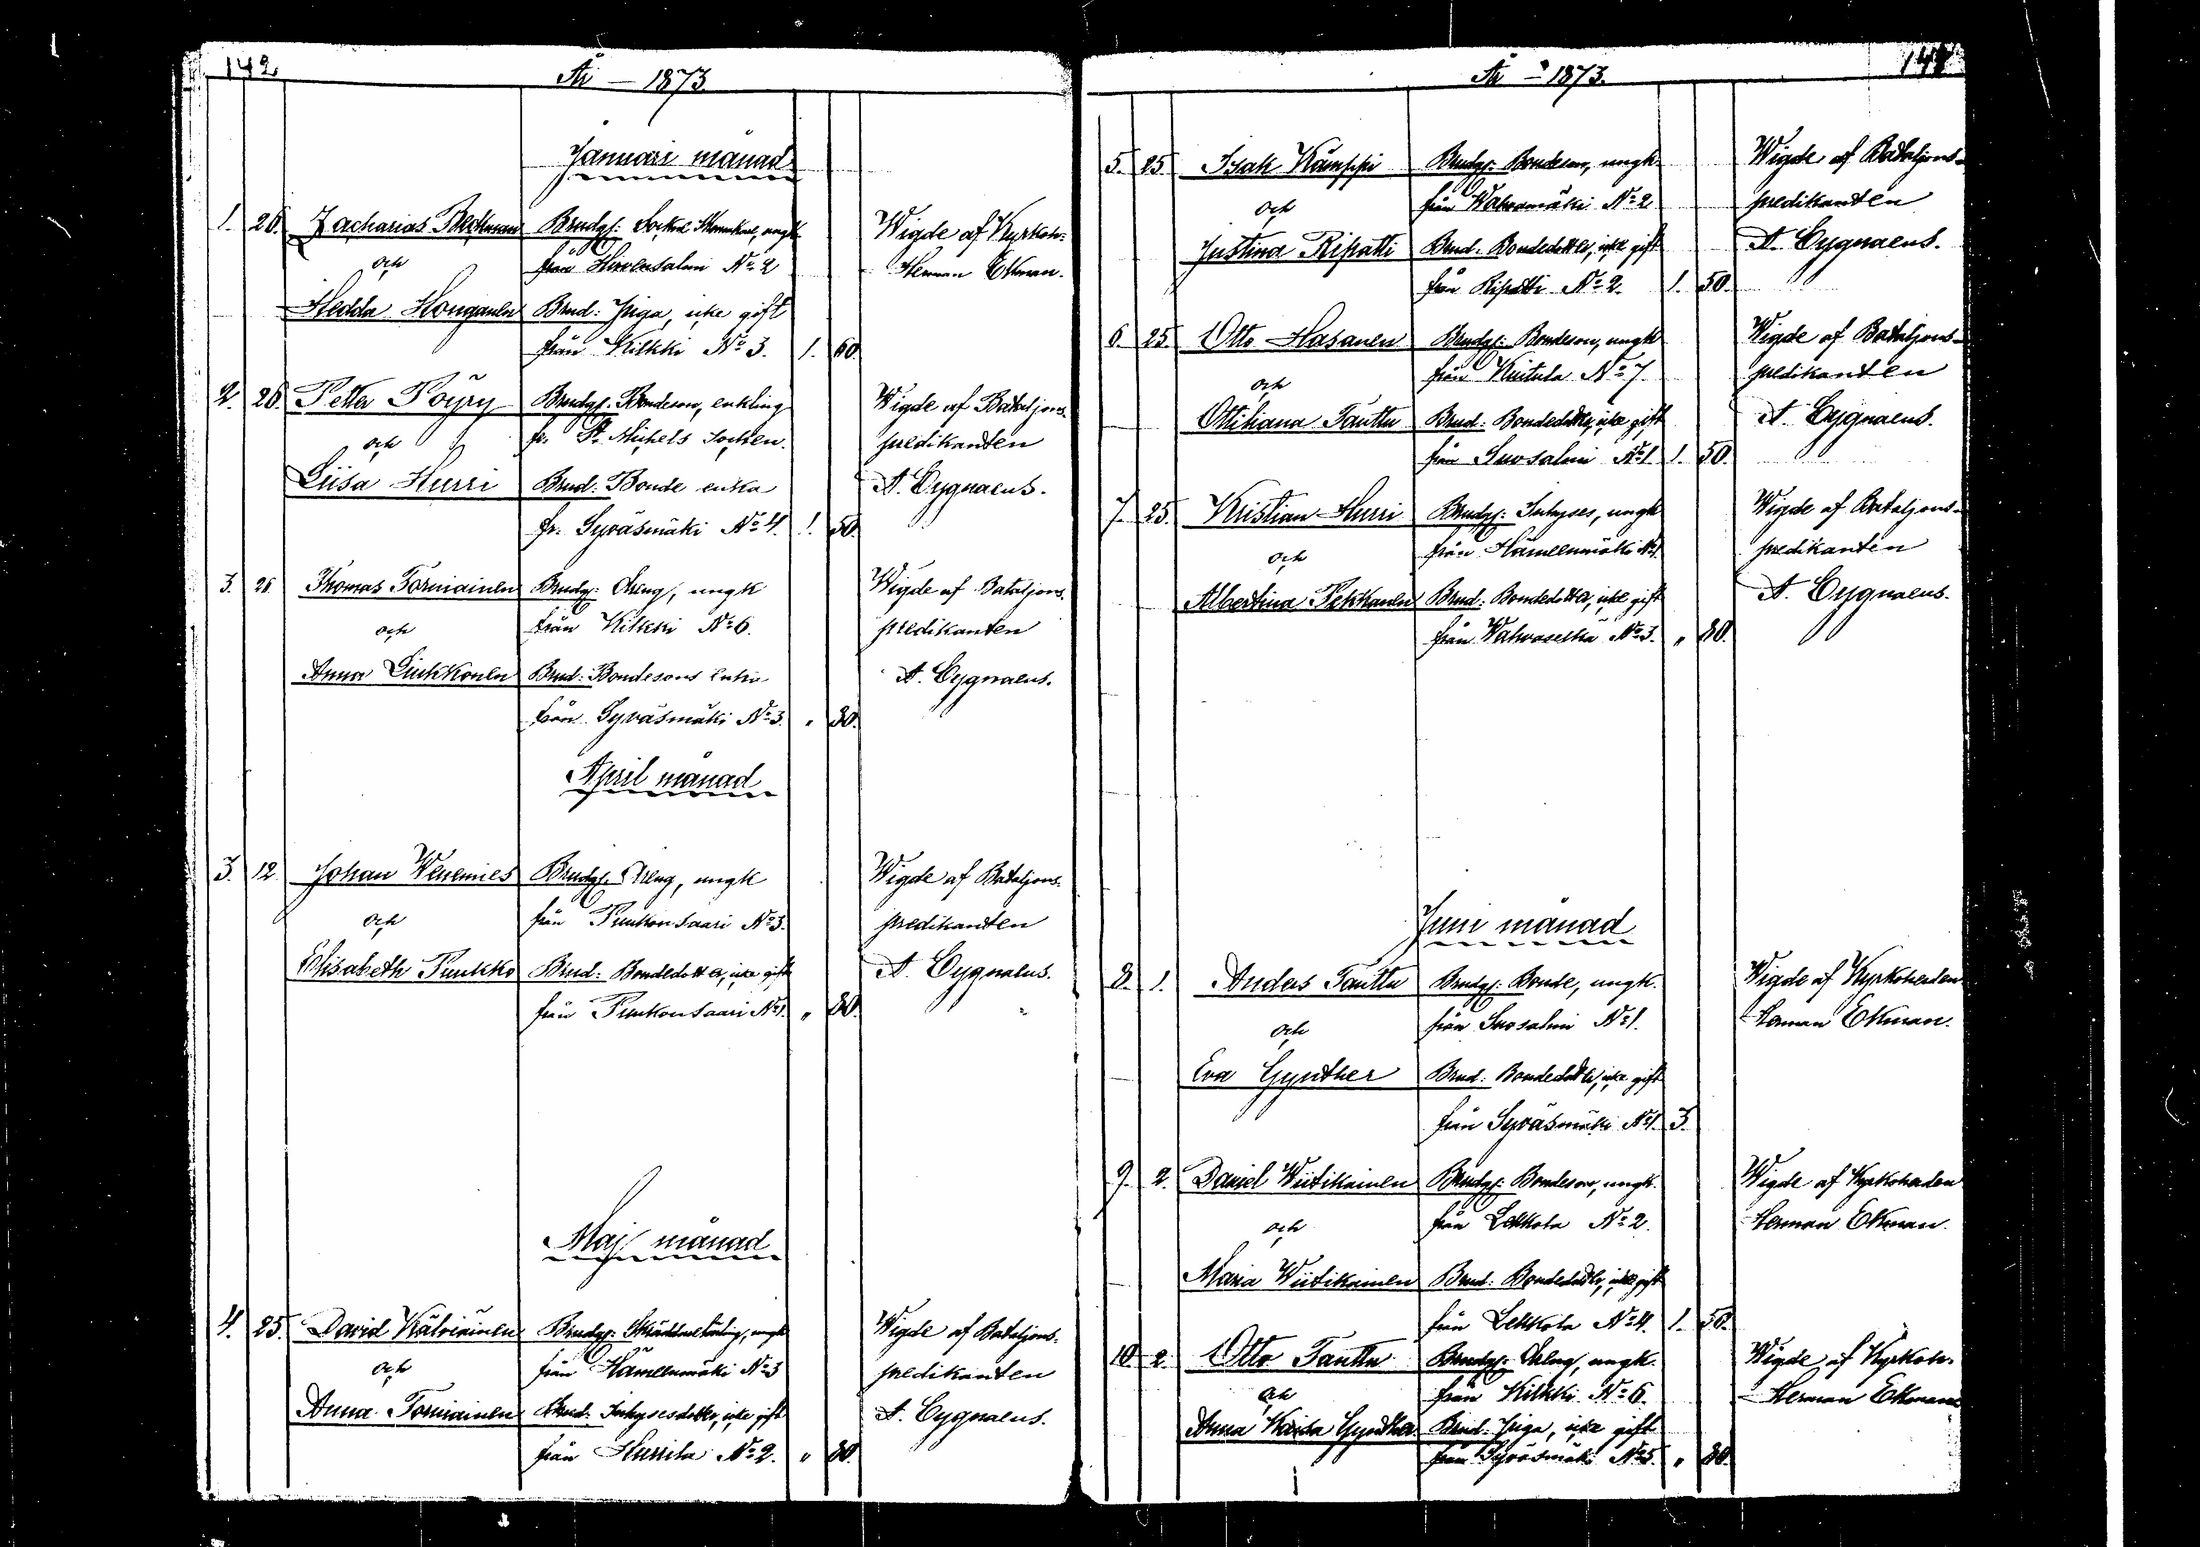 142.
År – 1873
Januari månad
1. 26. Zacharias Beckman Brudgf: Socken ungk Wigde af Kyrkoh:
och från Hirvensalmi No 2 Herman Ekman.
Hedda Honganen Brud: Piga, icke gift
från Kilkki No 3. 1. 60.
2. 26. Petter Pöyry Brudgf: Bondeson, enkling Wigde af Bataljons
och fr. St. Michels Socken. predikanten
Liisa Hurri Brud: Bonde enka A. Cygnaeus.
fr. Syväsmäki No 4. 1. 50.
3. 26. Thomas Torniainen Brudg: Dreng, ungk Wigde af Bataljons.
och från Kilkki No 6. predikanten
Anna Liukkonen Brud: Bondesons Enka A. Cygnaeus.
från Syväsmäki No 3. " 80.
April månad
3. 12. Johan Wenemies Brudgf. Dreng, ungk Wigde af Bataljons.
och från Puukonsaari No 3. predikanten
Elisabeth Puukko Brud: Bondedotter, icke gift A. Cygnaeus.
från Puukonsaari No 1. " 80.
Maj månad
4. 25. David Kälviäinen Brudgf: ungk Wigde af Bataljons.
och från Hämeenmäki No 3 predikanten
Anna Torniainen Brud: Inhysesdotter, icke gift A. Cygnaeus.
från Hurrila No 2. " 80.
År – 1873.
5. 25. Isak Kämppi Brudgf: Bondeson, ungk Wigde af Bataljons-
och från Wahvamäki No 2 predikanten
Justina Ripatti Brud: Bondedotter, icke gift A. Cygnaeus.
från Ripatti No 2. 1. 50.
6. 25. Otto Hasanen Brudgf: Bondeson, ungk Wigde af Bataljons-
och från Kuitula No 7. predikanten
Ottiliana Tanttu Brud: Bondedotter, icke gift A. Cygnaeus.
från Suosalmi No 1 1. 50.
7. 25. Kristian Hurri Brudgf: Inhyses, ungk Wigde af Bataljons-
och från Hämeenmäki No 1. predikanten
Albertina Pekkanen Brud: Bondedotter, icke gift A. Cygnaeus.
från Wahvaselkä No 3. " 80.
Juni månad
8. 1. Anders Tanttu Brudgf: Bonde, ungk. Wigde af Kyrkoherden
och från Suosalmi No 1. Herman Ekman.
Eva Gynther Brud: Bondedotter, icke gift
från Syväsmäki No 1. 3.
9. 2. Daniel Wiitikainen Brudgf: Bondeson, ungk. Wigde af Kyrkoherden
och från Lelkkola No 2. Herman Ekman.
Maria Wiitikainen Brud: Bondedotter, icke gift
från Lelkkola No 4. 1. 50.
10. 2. Otto Tanttu Brudgf: Dreng, ungk. Wigde af Kyrkoh.
och från Kilkki No 6. Herman Ekman
Anna Gynther Brud: Piga, icke gift
från Syväsmäki No 5. " 80.